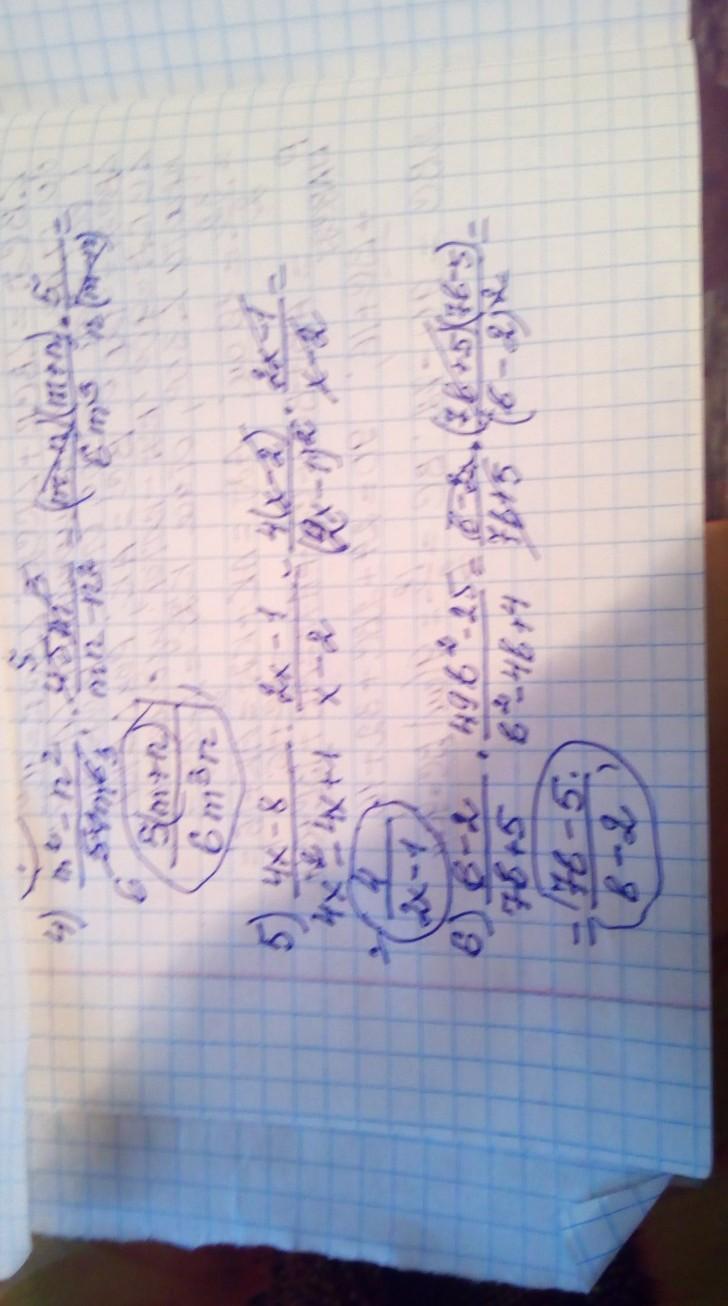 4) m² - n² / 54m⁶ · 45m³ / mn - n² = (m-n)(m+n) / 6m³ · 5 / n(m-n) =
5(m+n) / 6m³n ;
5) 4x - 8 / 4x² - 4x + 1 · 2x - 1 / x - 2 = 4(x-2) / (2x-1)² · 2x - 1 / x - 2 =
= 4 / 2x - 1
6) b - 2 / 7b + 5 · 49b² - 25 / b² - 4b + 4 = b - 2 / 7b + 5 · (7b+5)(7b-5) / (b-2)² =
= 7b - 5 / b - 2 ;